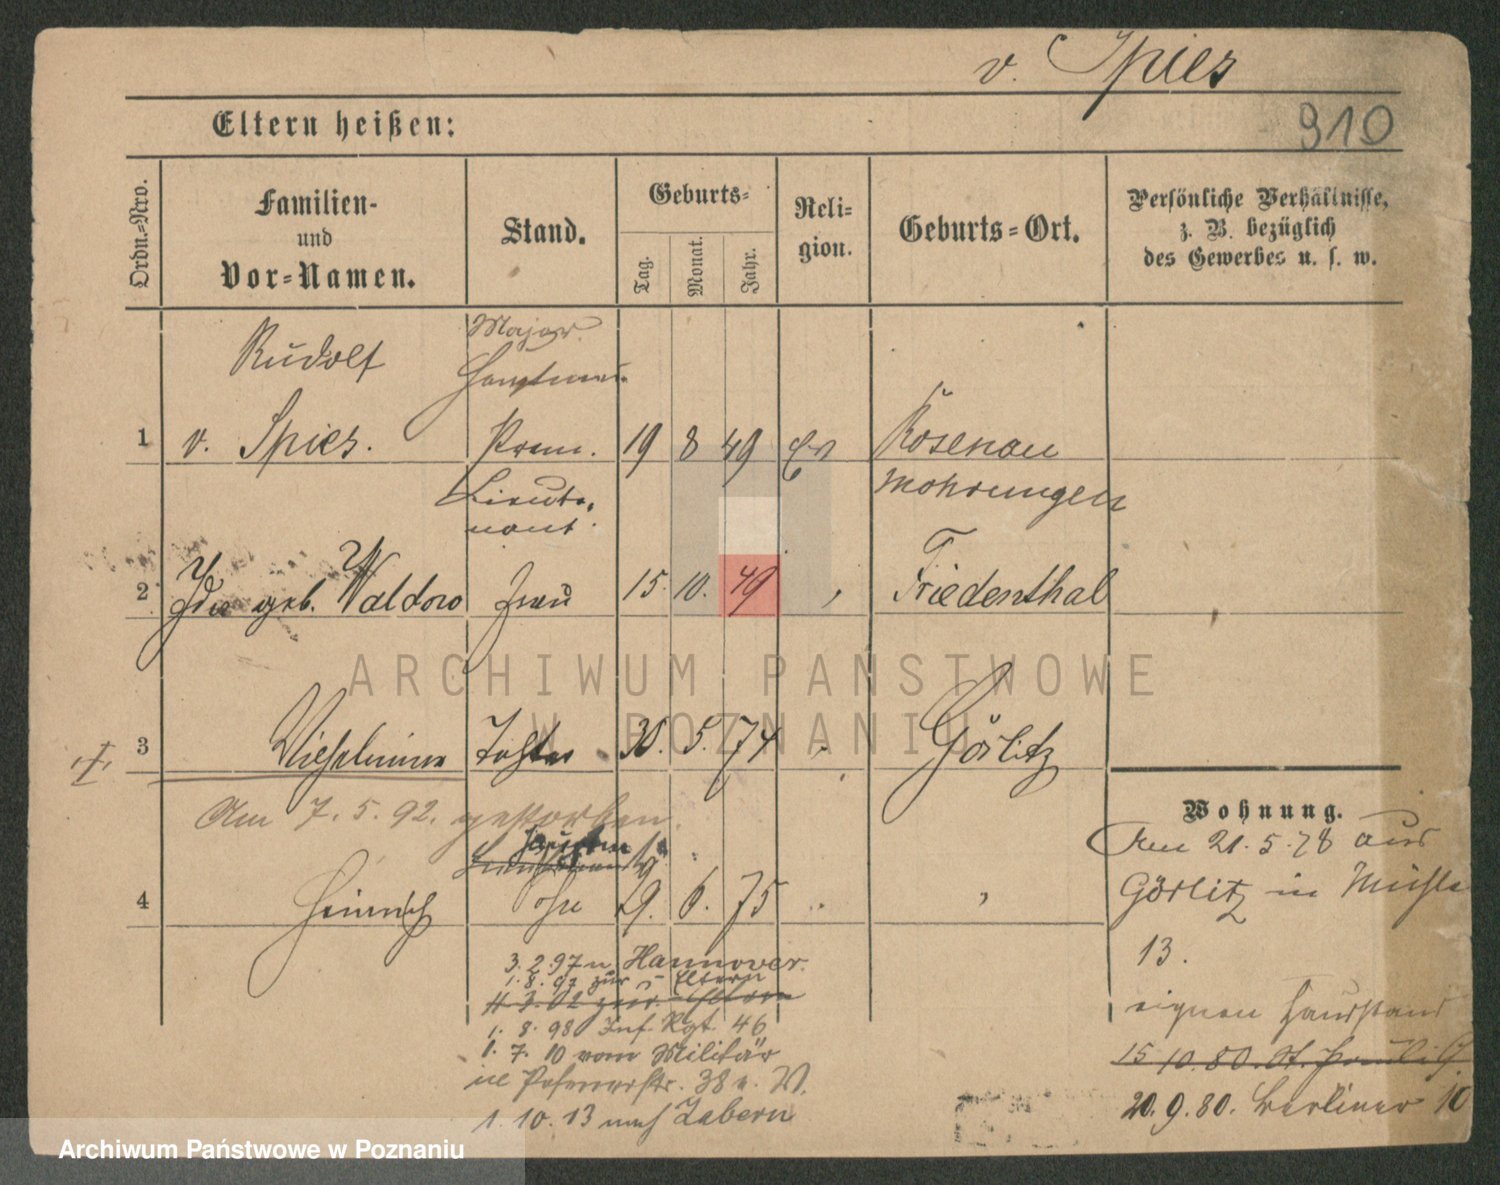 v. Spies
910
Eltern heißen:
Ordn.-Nro.
Familien-
und
Vor-Namen.
Stand.
Geburts-
Tag.
Monat.
Jahr.
Reli-
gion.
Geburts-Ort.
Persönliche Verhältnisse,
z. B. bezüglich
des Gewerbes u. s. w.
Rudolf
Major
Hauptmann
1 v. Spies. Prem. 19 8 49 Ev Rosenau
Lieute-
nant.
Mohrungen
2 Ida geb. Waldow Frau 15. 10. 49 " Friedenthal
ARCHIWUM PAŃSTWOWE
W POZNANIU
3 Wilhelmine Tochter 30. 5. 74 " Görlitz
Am 7. 5. 92. gestorben.
4 Heinrich Sohn 29. 6. 75 " "
3. 2. 97 n Hannover.
1. 8. 97 zur Eltern
1. 8. 98 Inf. Rgt. 46
1. 7. 10 vom Militär
in Posenerstr. 38 v. W.
1. 10. 13 nach Zabern
Wohnung.
Am 21. 5. 78 aus
Görlitz in Mühle
13.
eignen Hausstand
15 10. 80. St. Pauli
20. 9. 80. Berliner 10
Archiwum Państwowe w Poznaniu